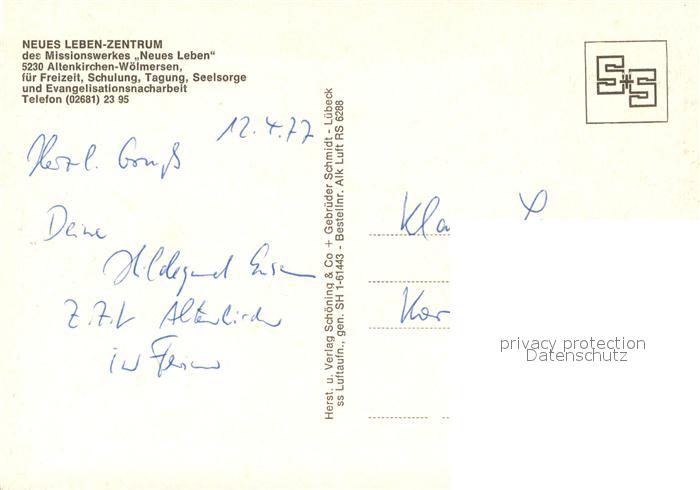 NEUES LEBEN-ZENTRUM
des Missionswerkes „Neues Leben“
5230 Altenkirchen-Wölmersen,
für Freizeit, Schulung, Tagung, Seelsorge
und Evangelisationsnacharbeit
Telefon (02681) 23 95
12.4.77
Herzl. Gruß
Deine
Hildegund
z.Zt Altenkirchen
in Ferien
Herst. u. Verlag Schöning & Co + Gebrüder Schmidt - Lübeck
ss Luftaufn., gen. SH 1-61443 - Bestellnr. Alk Luft RS 6288
S+S
Kla
Kar
privacy protection
Datenschutz